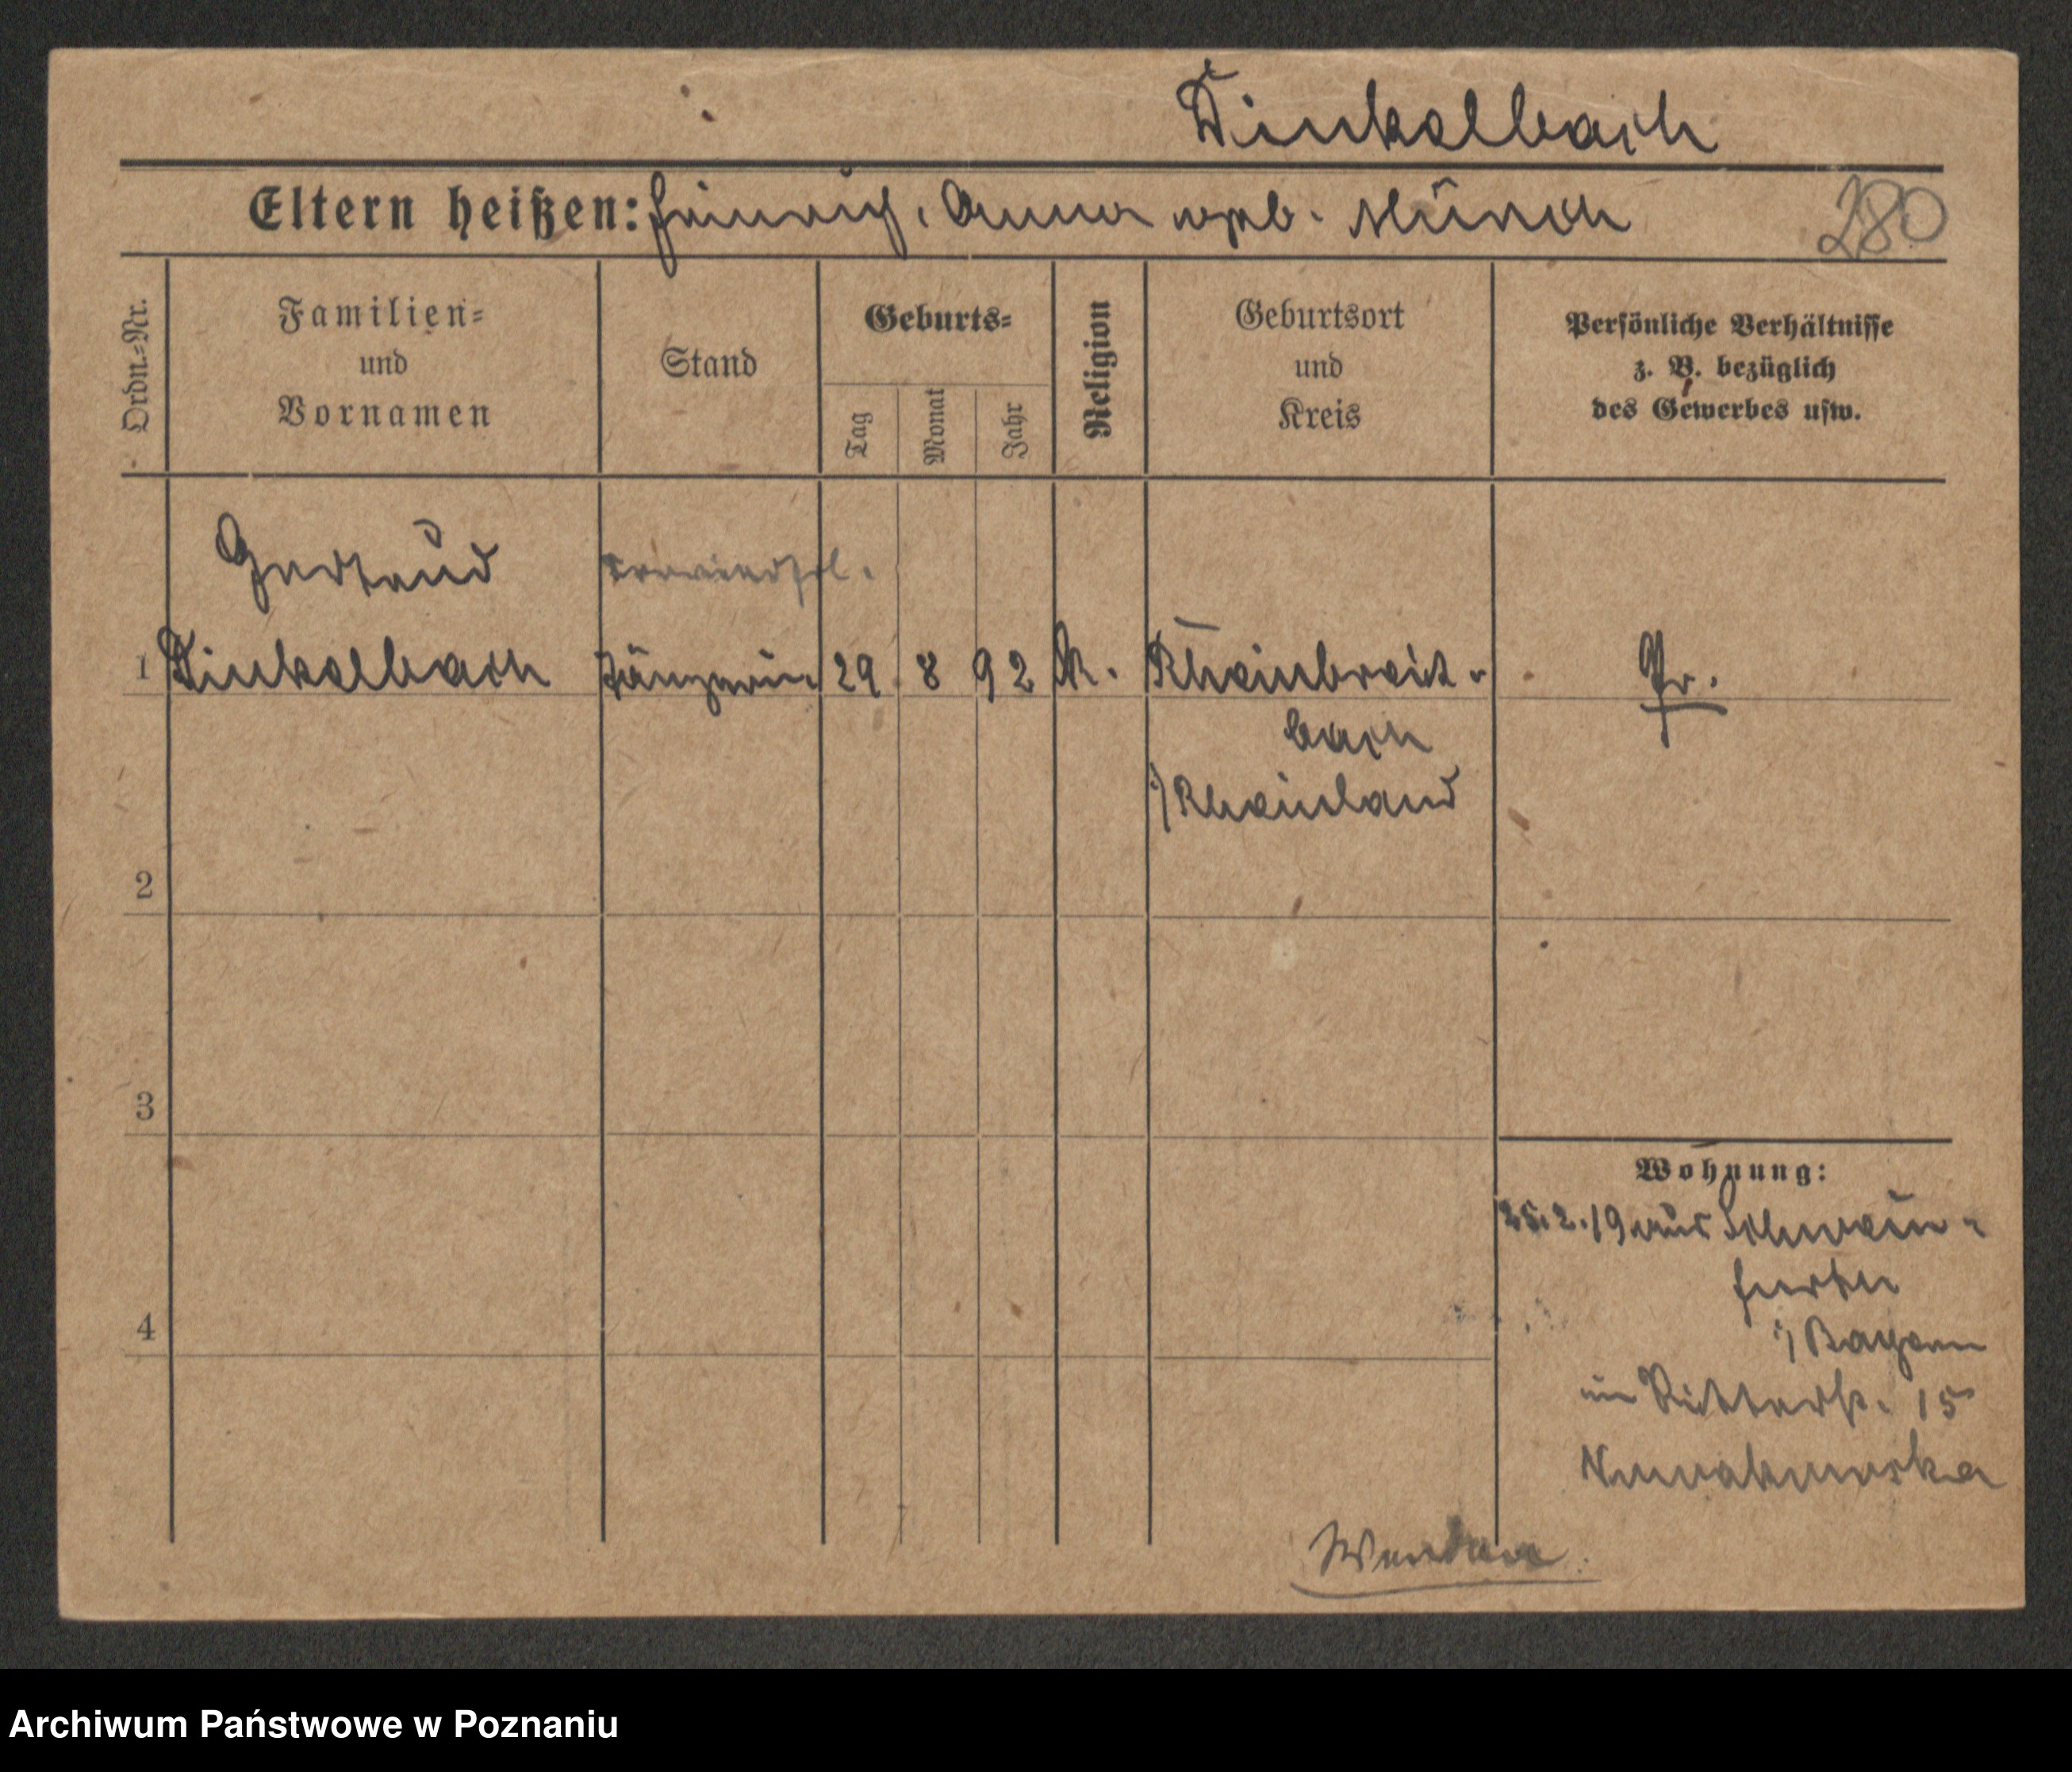 Dinkelbach
Eltern heißen: Heinrich, Anna geb. Münch
280
Ordn.=Nr.
Familien=
und
Vornamen
Stand
Geburts=
Tag
Monat
Jahr
Religion
Geburtsort
und
Kreis
Persönliche Verhältnisse
z. B. bezüglich
des Gewerbes usw.
Gertrud
1 Dinkelbach Sängerin 29 8 92 K. Rheinbreit-
bach
i/Rheinland
Pr.
2
3
4
Wohnung:
25.2.19 aus Schwein-
furth
i/ Bayern
in Ritterstr. 15
Nowakowska
Wenden
Archiwum Państwowe w Poznaniu